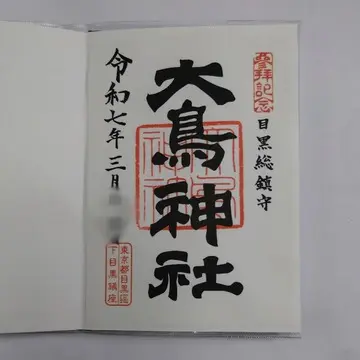 登拝記念
目黒総鎮守
大鳥神社
令和七年三月
東京都目黒区
下目黒鎮座